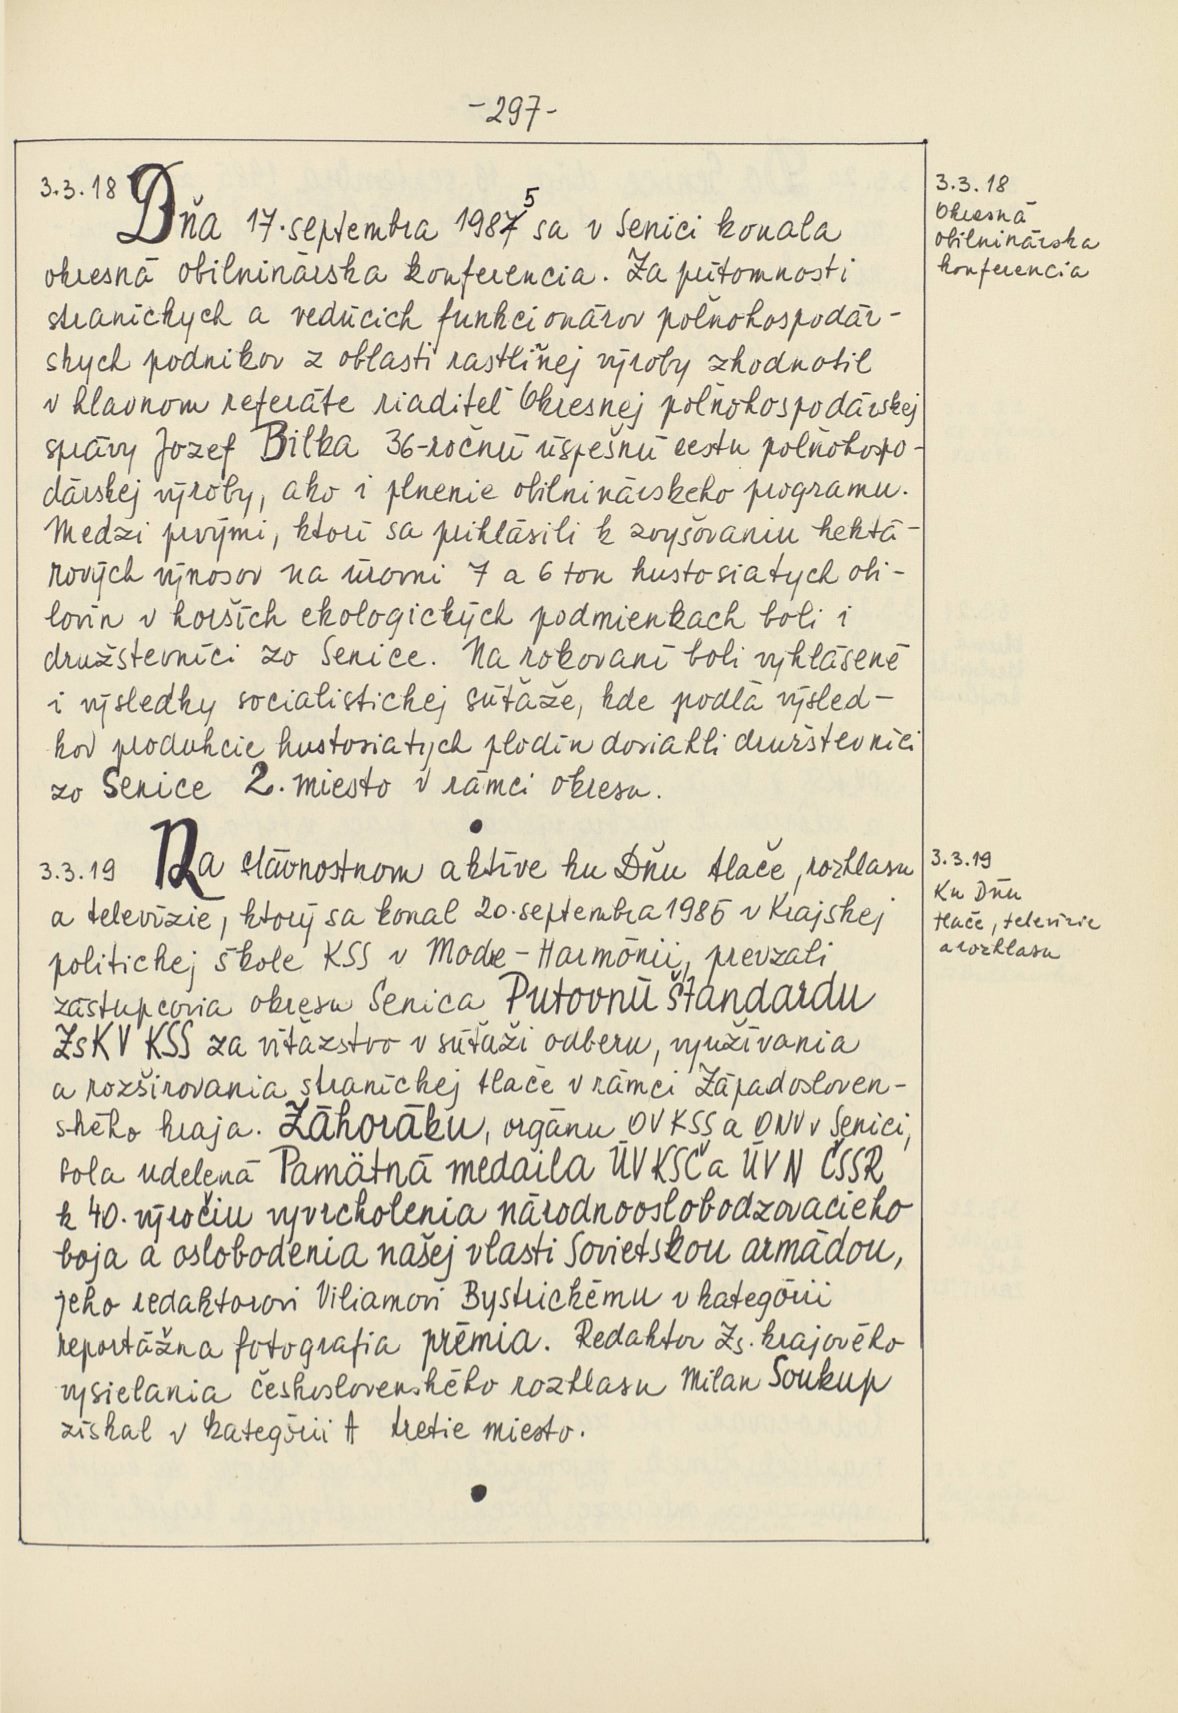 -297-
3.3.18 Dňa 17. septembra 1985 sa v Senici konala
okresná obilninárska konferencia. Za prítomnosti
straníckych a vedúcich funkcionárov poľnohospodár-
skych podnikov z oblasti rastlinej výroby zhodnotil
v hlavnom referáte riaditeľ Okresnej poľnohospodárskej
správy Jozef Bilka 36-ročnú úspešnú cestu poľnohospo-
dárskej výroby, ako i plnenie obilninárskeho programu.
Medzi prvými, ktorí sa prihlásili k zvyšovaniu hektá-
rových výnosov na úrovni 7 a 6 ton hustosiatych obi-
lovín v horších ekologických podmienkach boli i
družstevníci zo Senice. Na rokovaní boli vyhlásené
i výsledky socialistickej súťaže, kde podľa výsled-
kov produkcie hustosiatych plodín dosiahli družstevníci
zo Senice 2. miesto v rámci okresu.
3.3.18
Okresná
obilninárska
konferencia
3.3.19 Na slávnostnom aktíve ku Dňu tlače, rozhlasu
a televízie, ktorý sa konal 20. septembra 1985 v Krajskej
politickej škole KSS v Modre-Harmónii, prevzali
zástupcovia okresu Senica Putovnú štandardu
ZsKV KSS za víťazstvo v súťaži odberu, využívania
a rozširovania straníckej tlače v rámci Západosloven-
ského kraja. Záhoráku, orgánu OV KSS a ONV v Senici,
bola udelená Pamätná medaila ÚV KSČ a ÚV N ČSSR
k 40. výročiu vyvrcholenia národnooslobodzovacieho
boja a oslobodenia našej vlasti Sovietskou armádou,
jeho redaktorovi Viliamovi Bystrickému v kategórii
reportážna fotografia prémia. Redaktor Zs. krajového
vysielania československého rozhlasu Milan Soukup
získal v kategórii A tretie miesto.
3.3.19
Ku Dňu
tlače, televízie
a rozhlasu